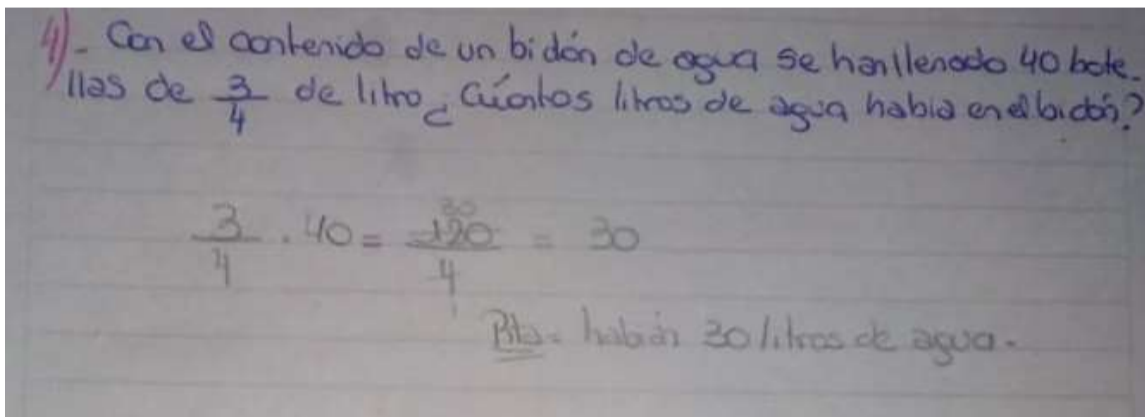 4)- Con el contenido de un bidón de agua se han llenado 40 bote-
llas de 3/4 de litro ¿Cúantos litros de agua habia en el bidón?
3/4 . 40 = 120/4 = 30
30
1
Rta= habián 30 litros de agua.